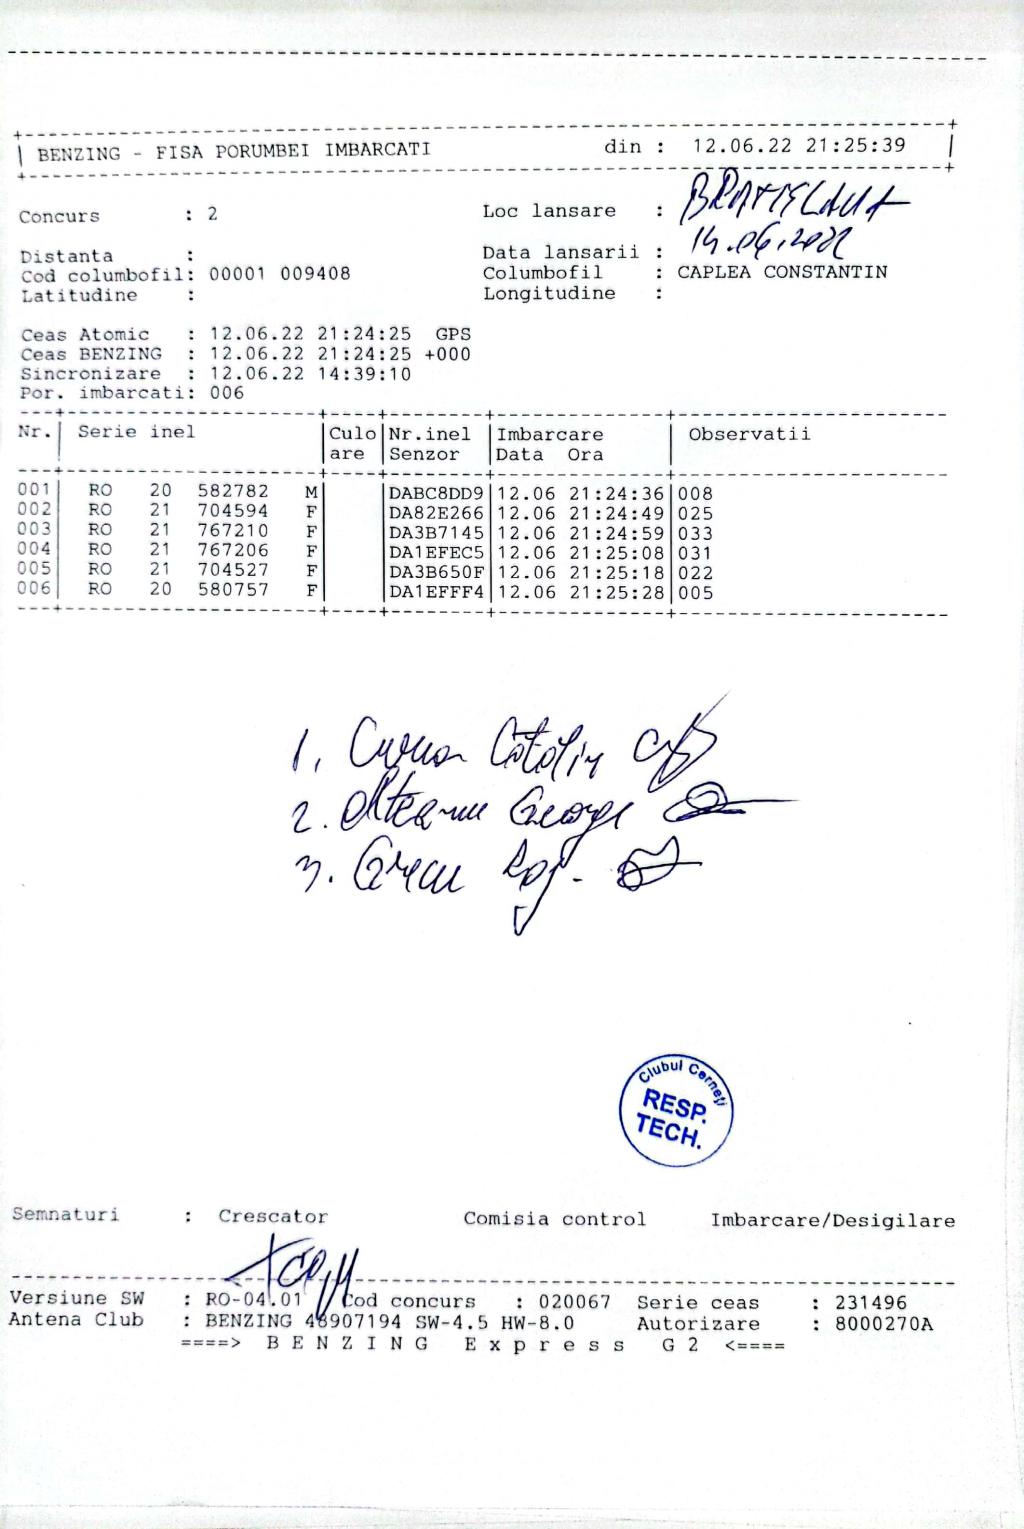 BENZING - FISA PORUMBEI IMBARCATI din : 12.06.22 21:25:39
Concurs : 2 Loc lansare : BRATISLAVA
Distanta : Data lansarii : 14.06.2022
Cod columbofil: 00001 009408 Columbofil : CAPLEA CONSTANTIN
Latitudine : Longitudine :
Ceas Atomic : 12.06.22 21:24:25 GPS
Ceas BENZING : 12.06.22 21:24:25 +000
Sincronizare : 12.06.22 14:39:10
Por. imbarcati: 006
Nr. Serie inel Culo Nr.inel Imbarcare Observatii
are Senzor Data Ora
001 RO 20 582782 M DABC8DD9 12.06 21:24:36 008
002 RO 21 704594 F DA82E266 12.06 21:24:49 025
003 RO 21 767210 F DA3B7145 12.06 21:24:59 033
004 RO 21 767206 F DA1EFEC5 12.06 21:25:08 031
005 RO 21 704527 F DA3B650F 12.06 21:25:18 022
006 RO 20 580757 F DA1EFFF4 12.06 21:25:28 005
1. Catalin
2. Olteanu George
3. Grecu
Clubul Cerneți
RESP.
TECH.
Semnaturi : Crescator Comisia control Imbarcare/Desigilare
Versiune SW : RO-04.01 Cod concurs : 020067 Serie ceas : 231496
Antena Club : BENZING 48907194 SW-4.5 HW-8.0 Autorizare : 8000270A
====> B E N Z I N G E x p r e s s G 2 <====